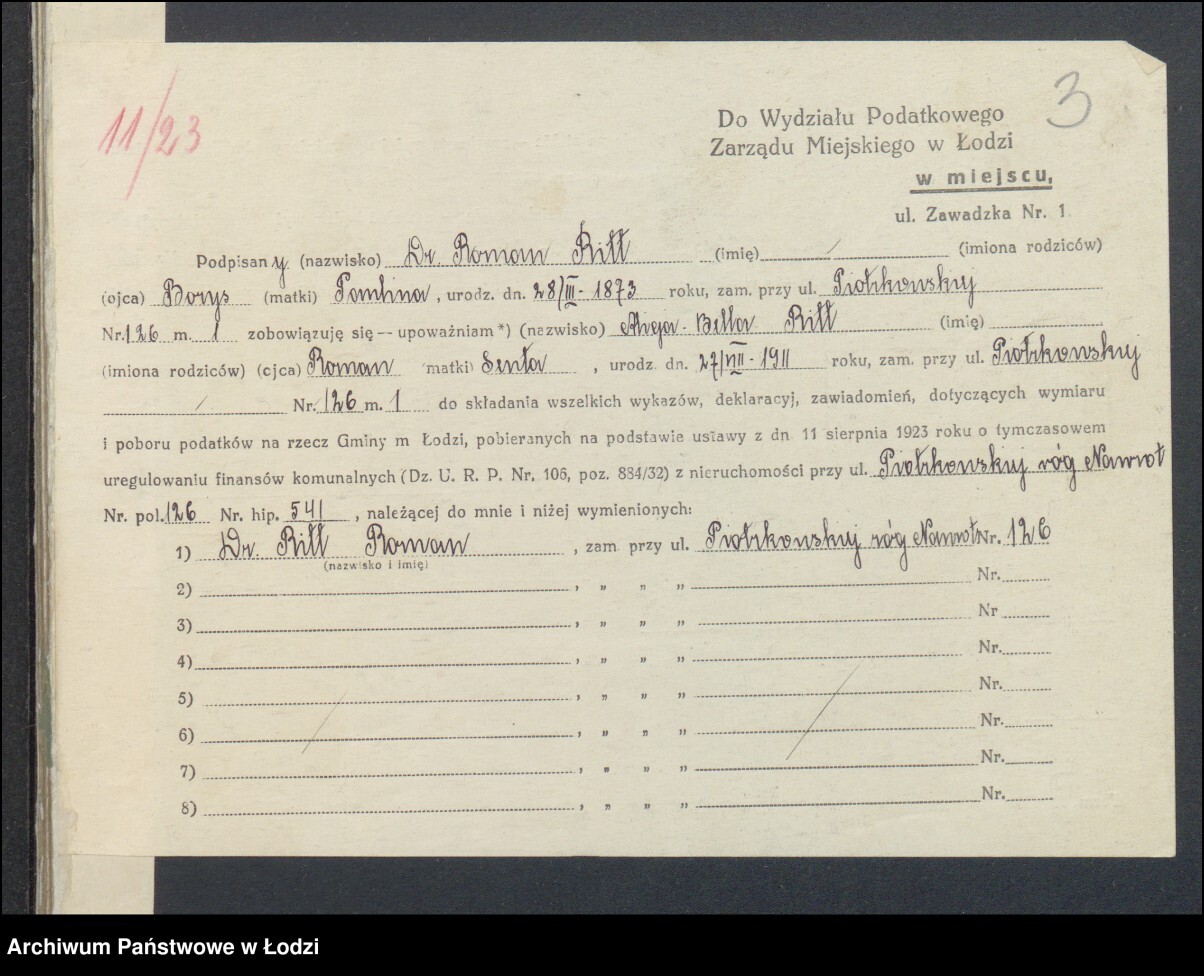 11/23
3
Do Wydziału Podatkowego
Zarządu Miejskiego w Łodzi
w miejscu,
ul. Zawadzka Nr. 1
Podpisany (nazwisko) Dr Roman Ritt (imię) (imiona rodziców)
(ojca) Borys (matki) Paulina, urodz. dn. 28/III - 1873 roku, zam. przy ul. Piotrkowskiej
Nr. 126 m. 1 zobowiązuję się -- upoważniam *) (nazwisko) Bella Ritt (imię)
(imiona rodziców) (ojca) Roman (matki) Senta, urodz. dn. 27/VII - 1911 roku, zam. przy ul. Piotrkowskiej
Nr. 126 m. 1 do składania wszelkich wykazów, deklaracyj, zawiadomień, dotyczących wymiaru
i poboru podatków na rzecz Gminy m Łodzi, pobieranych na podstawie ustawy z dn 11 sierpnia 1923 roku o tymczasowem
uregulowaniu finansów komunalnych (Dz. U. R. P. Nr. 106, poz. 884/32) z nieruchomości przy ul. Piotrkowskiej róg Nawrot
Nr. pol. 126 Nr. hip. 541, należącej do mnie i niżej wymienionych:
1) Dr. Ritt Roman, zam. przy ul. Piotrkowskiej róg Nawrot Nr. 126
(nazwisko i imię)
2) , „ „ „ Nr.
3) , „ „ „ Nr
4) , „ „ „ Nr.
5) , „ „ „ Nr.
6) , „ „ „ Nr.
7) , „ „ „ Nr.
8) , „ „ „ Nr.
Archiwum Państwowe w Łodzi